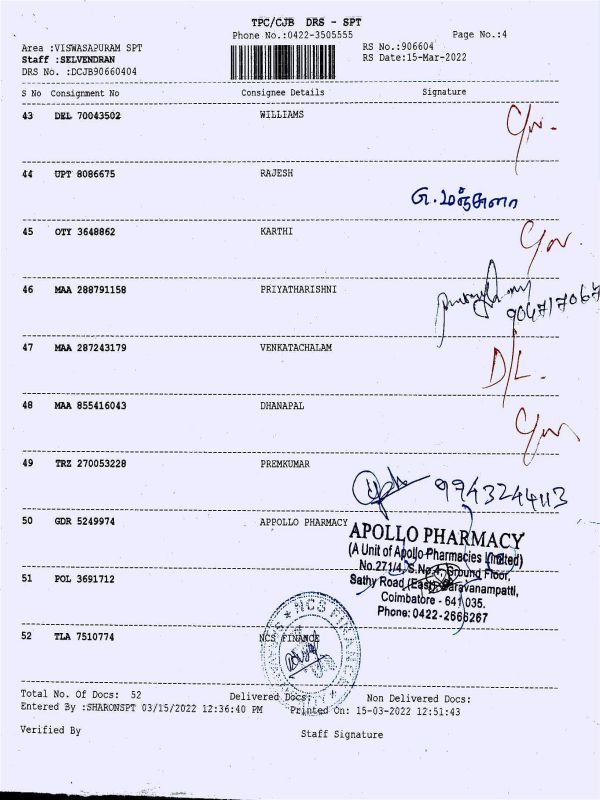 TPC/CJB DRS - SPT
Phone No.:0422-3505555 Page No.:4
Area :VISWASAPURAM SPT RS No.:906604
Staff :SELVENDRAN RS Date:15-Mar-2022
DRS No. :DCJB90660404
S No Consignment No Consignee Details Signature
43 DEL 70043502 WILLIAMS
44 UPT 8086675 RAJESH
45 OTY 3648862 KARTHI
46 MAA 288791158 PRIYATHARISHNI
47 MAA 287243179 VENKATACHALAM D/L.
48 MAA 855416043 DHANAPAL
49 TRZ 270053228 PREMKUMAR
50 GDR 5249974 APPOLLO PHARMACY
APOLLO PHARMACY
(A Unit of Apollo Pharmacies Limited)
No.271/4, S.No.4, Ground Floor,
51 POL 3691712 Sathy Road (East), Saravanampatti,
Coimbatore - 641 035.
Phone: 0422-2666267
52 TLA 7510774 NCS FINANCE
Total No. Of Docs: 52 Delivered Docs: Non Delivered Docs:
Entered By :SHARONSPT 03/15/2022 12:36:40 PM Printed On: 15-03-2022 12:51:43
Verified By Staff Signature